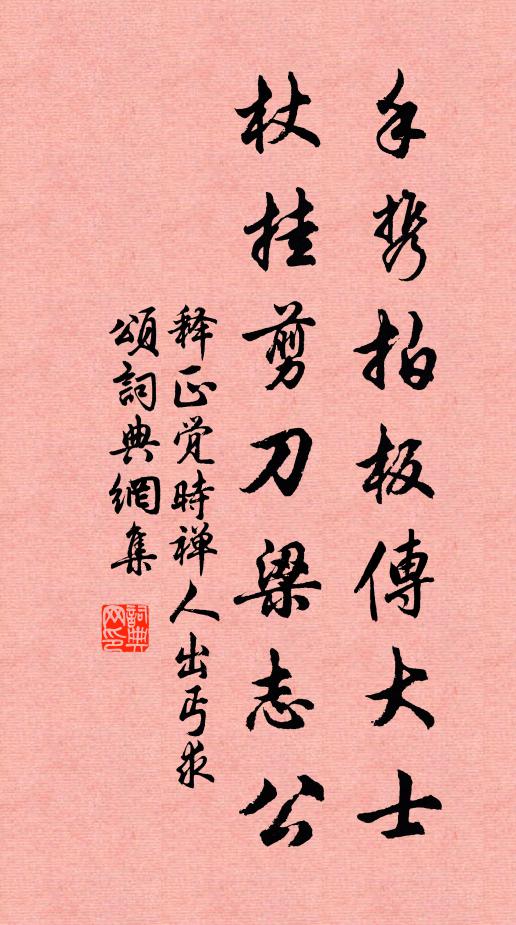 手携拍板傅大士
杖挂剪刀梁志公
释正觉時禅人出丐求
頌詞典網集
詞典网印